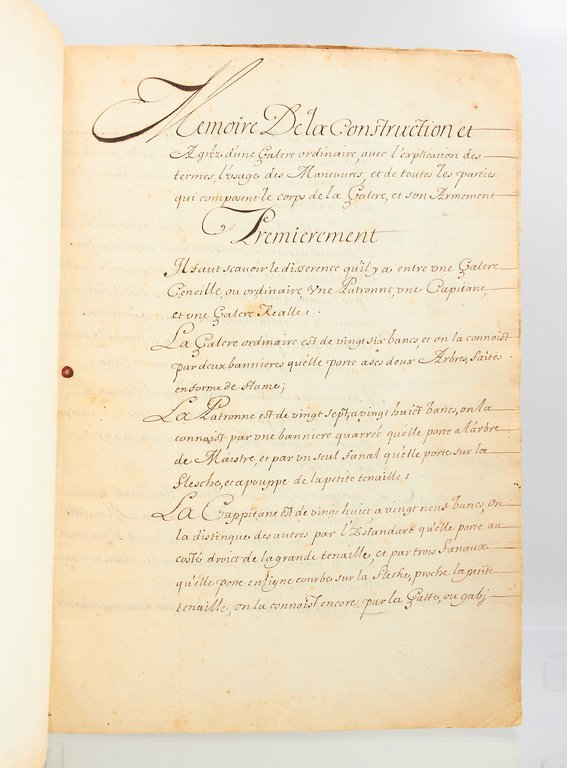 Memoire De la Construction et
Agréz d'une Galere ordinaire, avec l'explication des
termes, l'usage des Maneuvres, et de toutes les parties
qui composent le corps de la Galere, et son Armement
Premierement
Il faut scavoir le difference qu'il y a entre vne Galere
Cenzille, ou ordinaire, Vne Patronne, vne Capitane,
et vne Galere Realle;
La Galere ordinaire est de vingt six bancs, et on la connoist
par deux bannieres qu'elle porte a ses deux Arbres, faites
en forme de flame;
La Patronne est de vingt sept, a vingt huict bancs, on la
connoist par vne banniere quarreé qu'elle porte a l'arbre
de Maistre, et par vn seul fanal qu'elle porte sur la
flesche, et a pouppe de la petite tenaille;
La Cappitane est de vingt huict a vingt neuf bancs, on
la distingue des autres par l'Estandart qu'elle porte au
costé droict de la grande tenaille, et par trois fanaux
qu'elle porte en ligne courbe sur la fleche, proche la petite
tenaille, on la connoist encore par la Gatte, ou gabj